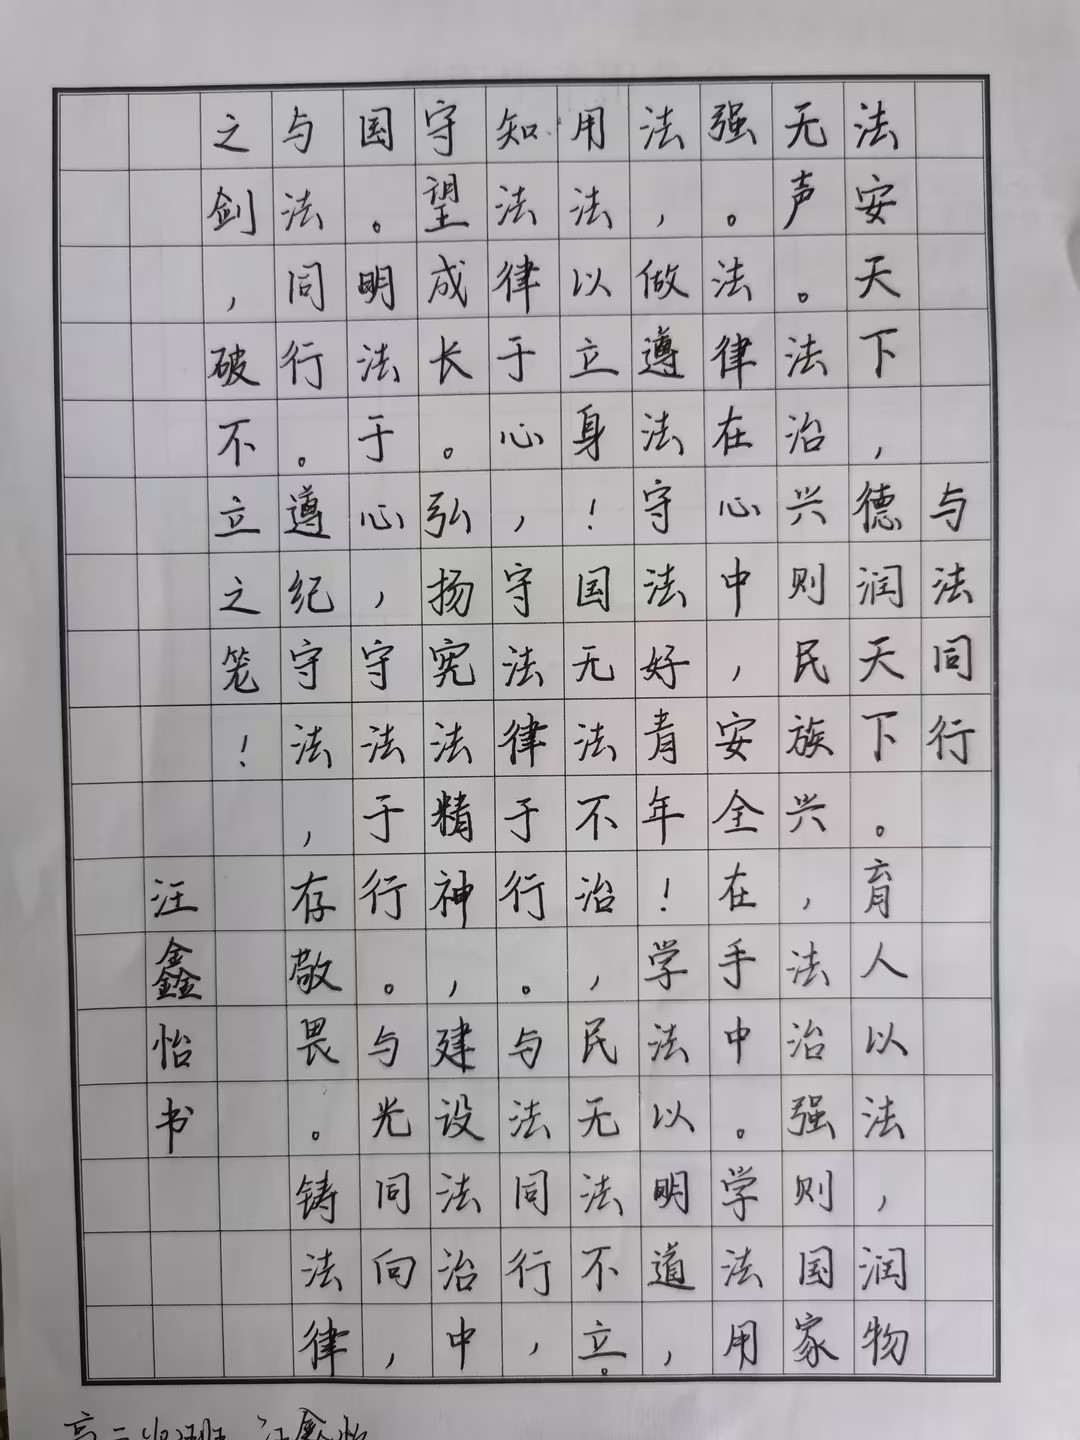 与法同行
法安天下，德润天下。育人以法，润物
无声。法治兴则民族兴，法治强则国家
强。法律在心中，安全在手中。学法用
法，做遵法守法好青年！学法以明道，
用法以立身！国无法不治，民无法不立。
知法律于心，守法律于行。与法同行，
守望成长。弘扬宪法精神，建设法治中
国。明法于心，守法于行。与光同向，
与法同行。遵纪守法，存敬畏。铸法律
之剑，破不立之笼！
汪鑫怡书